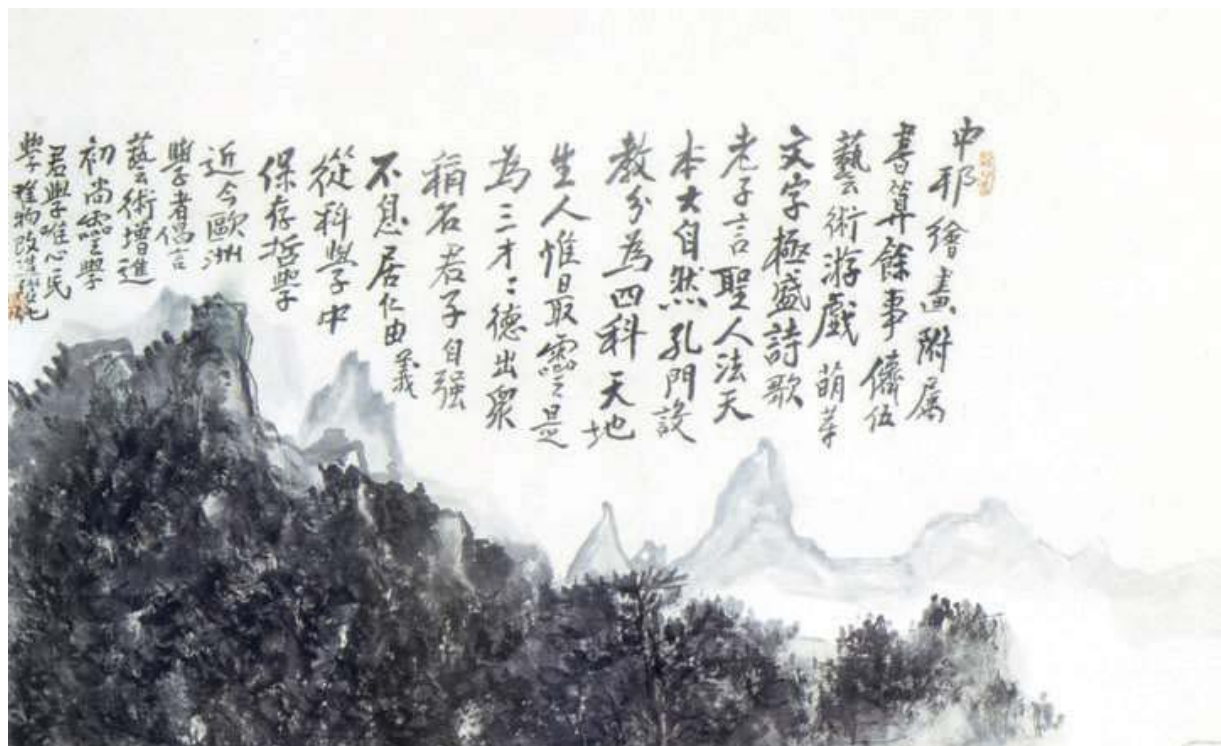 中邦繪畫附属
書算餘事儕伍
藝術游戲萌芽
文字極盛詩歌
老子言聖人法天
本大自然孔門設
教分為四科天地
生人惟最靈是
為三才〻德出眾
稱名君子自强
不息居仁由義
從科學中
保存哲學
近今歐洲
學者倡言
藝術增進
初尚靈學
君學唯心民
學唯物改進變化